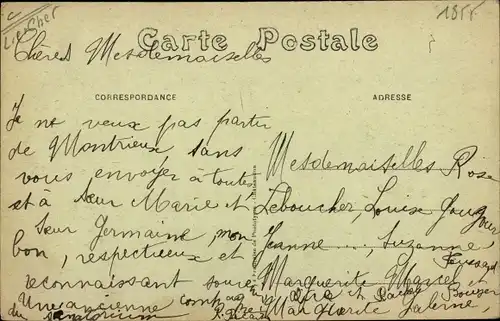 Lr et Cher
1855
Chères Mesdemoiselles
Carte Postale
CORRESPONDANCE
ADRESSE
Je ne veux pas partir
de Montrieux, sans
vous envoyer à toutes
et à Sœur Marie et
Sœur Germaine, mon
bon, respectueux et
reconnaissant souve
Une ancienne
du sanatorium
Mesdemoiselles Rose
Leboucher, Louise
Jeanne ...., Suzanne
Marguerite Marcel
Marguerite Galerne,